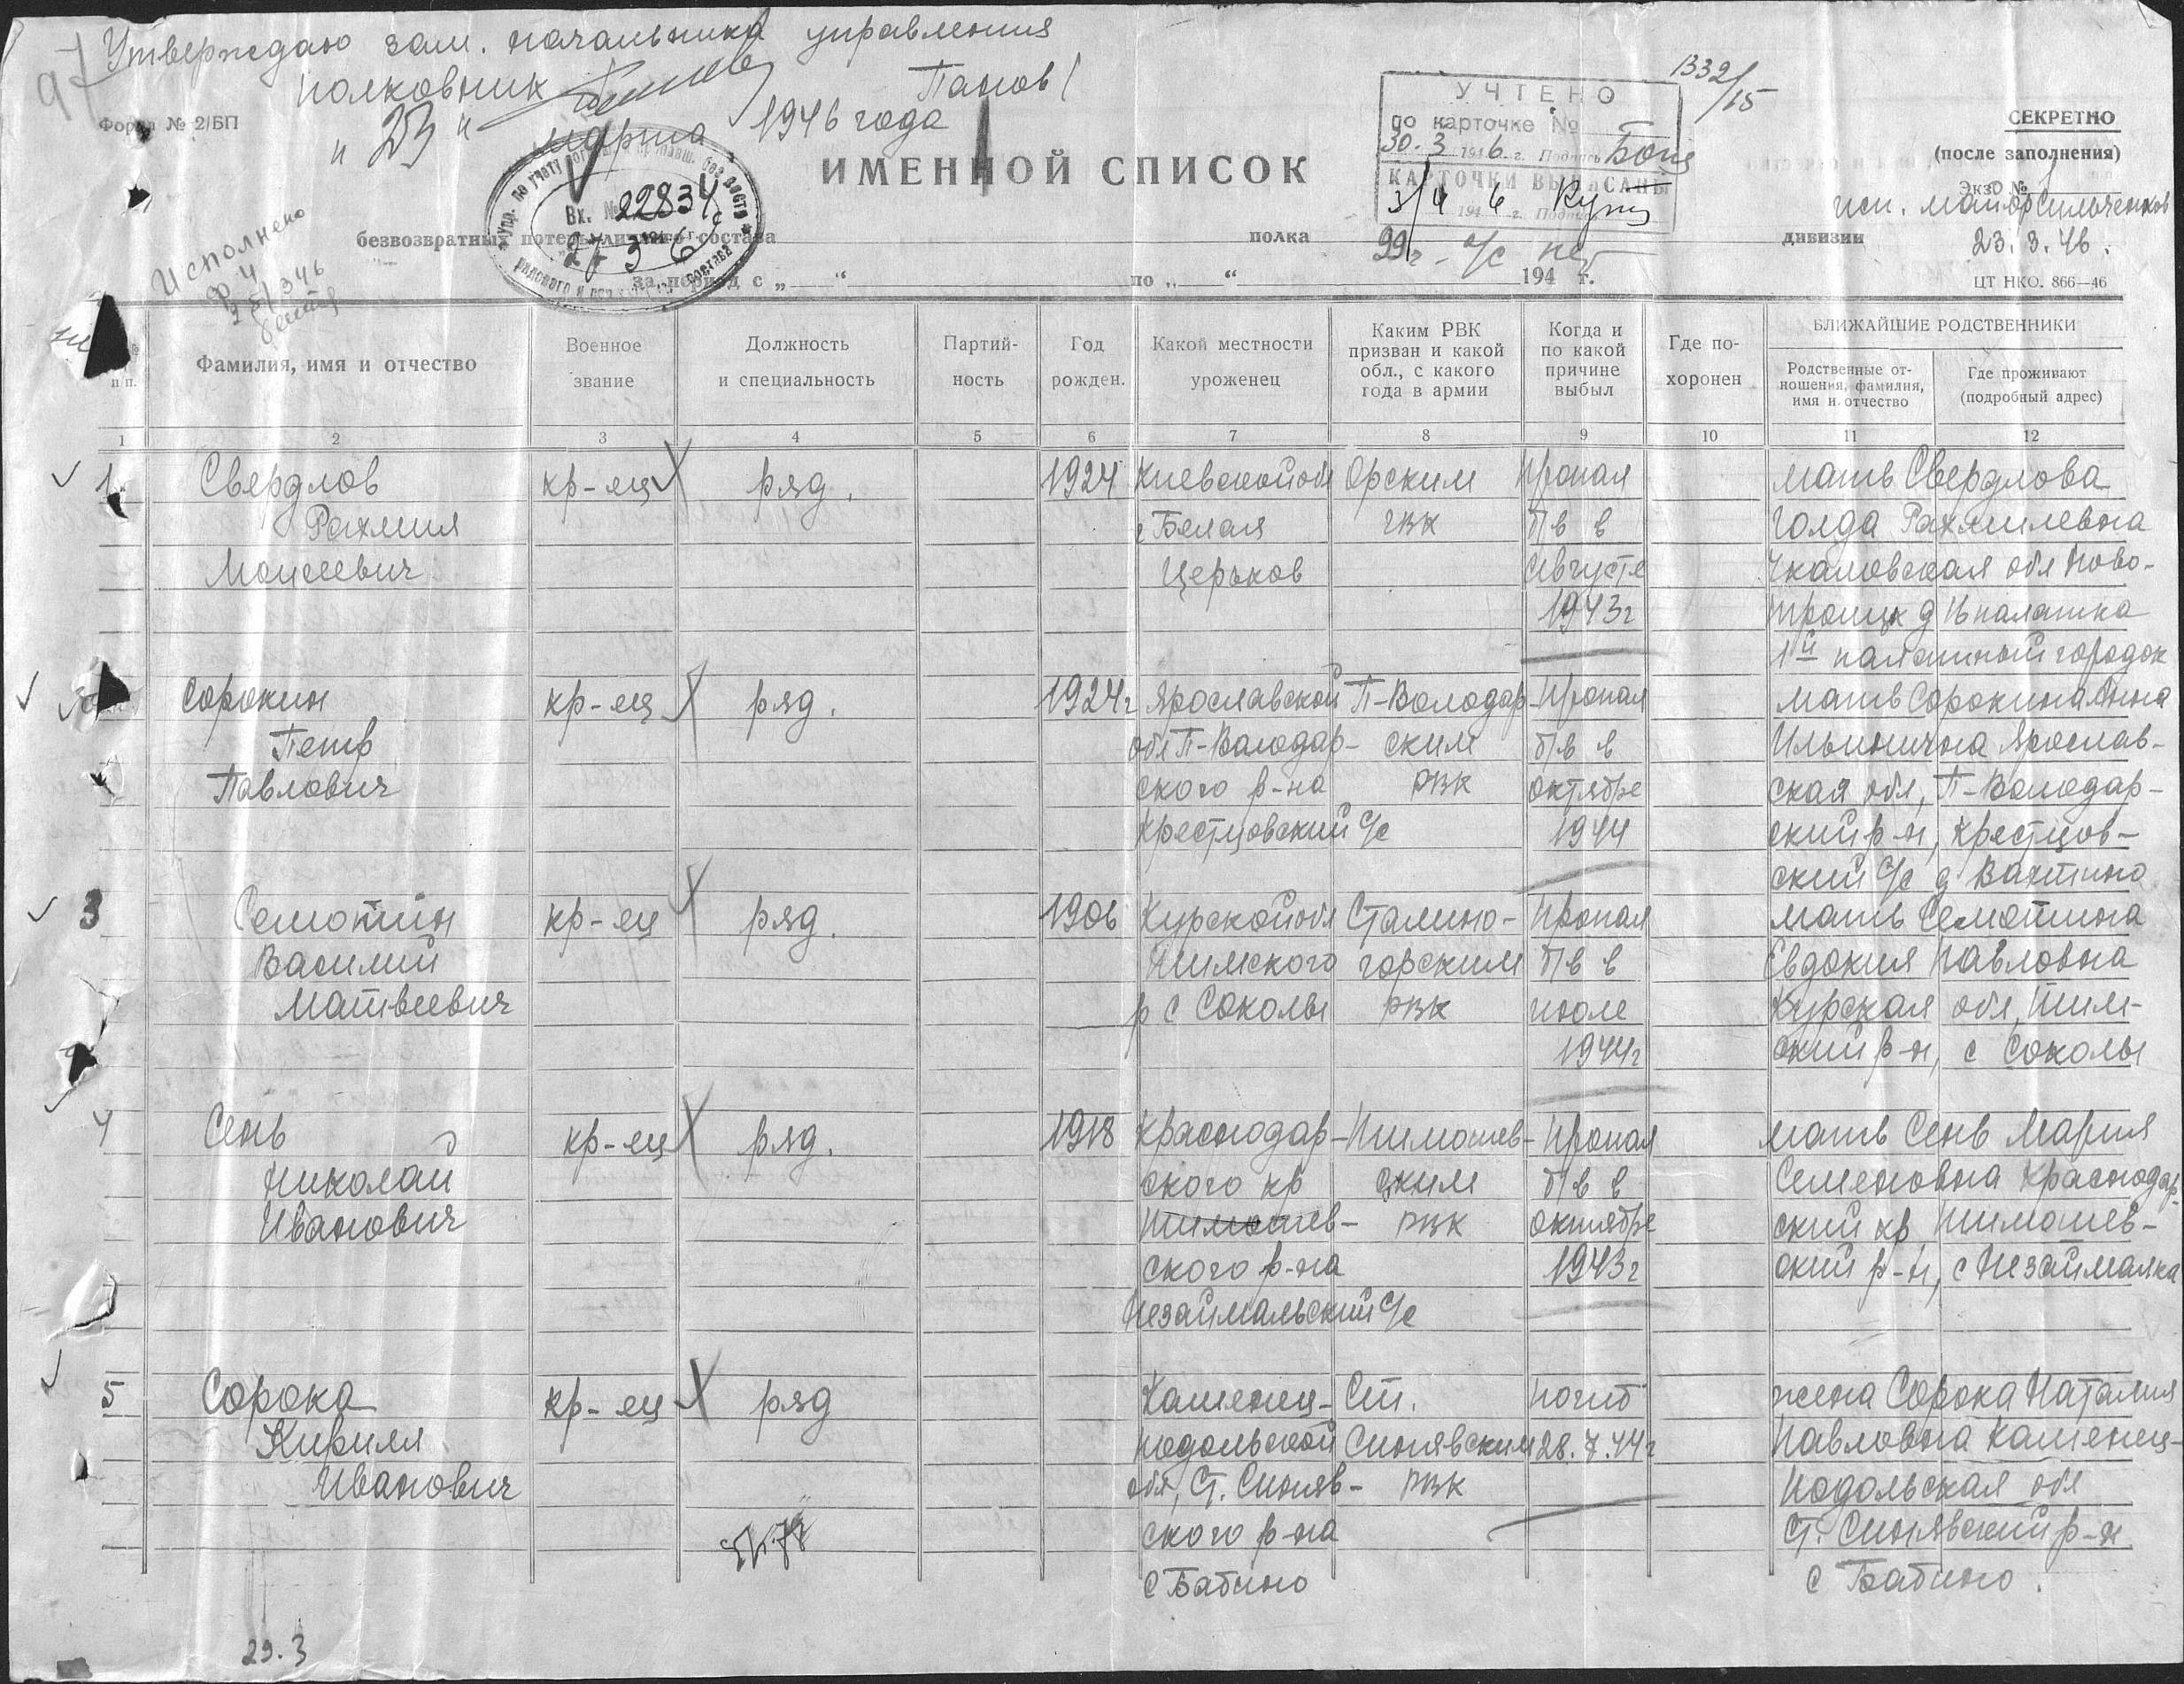 Утверждаю зам. начальника управления
полковник Панов /
" 23 " марта 1946 года
1332/15
Форма № 2/БП
УЧТЕНО
по карточке №
30. 3 1946 г. Подпись
КАРТОЧКИ ВЫПИСАНЫ
3/4 1946 г. Подпись
СЕКРЕТНО
(после заполнения)
Экз. № 1
исп. майор Сильченков
23. 3. 46.
ИМЕННОЙ СПИСОК
Вх. № 22834с
27 3 1946 г.
Исполнено
безвозвратных потерь личного состава полка дивизии
за период с „ “ по „ “ 194 г.
ЦТ НКО. 866—46
п п.
Фамилия, имя и отчество
Военное звание
Должность и специальность
Партий-ность
Год рожден.
Какой местности уроженец
Каким РВК призван и какой обл., с какого года в армии
Когда и по какой причине выбыл
Где по-хоронен
БЛИЖАЙШИЕ РОДСТВЕННИКИ
Родственные от-ношения, фамилия, имя и отчество
Где проживают (подробный адрес)
1 2 3 4 5 6 7 8 9 10 11 12
1. Свердлов кр-ец ряд. 1924 Киевской обл Орским Пропал мать Свердлова
Рахмил г Белая ГВК б/в в Голда Рахмилевна
Моисеевич Церьков августе Чкаловская обл Ново-
1943г троицк д 16 палатка
1й палатный городок
Сорокин кр-ец ряд. 1924г Ярославской П-Володар- Пропал мать Сорокина Анна
Петр обл П-Володар- ским б/в в Ильинична Ярослав-
Павлович ского р-на РВК октябре ская обл, П-Володар-
Крестцовский с/с 1944 ский р-н, Крестцов-
ский с/с д Вахтино
3 Семотин кр-ец ряд. 1906 Курской обл Сталино- Пропал мать Семотина
Василий Тимского горским б/в в Евдокия Павловна
Матвеевич р с Соколы РВК июле Курская обл, Тим-
1944г ский р-н, с Соколы
4 Сень кр-ец ряд. 1918 Краснодар- Тимошев- Пропал мать Сень Мария
Николай ского кр ским б/в в Семеновна Краснодар-
Иванович Тимошев- РВК октябре ский кр Тимошев-
ского р-на 1943г ский р-н, с Незаймалка
Незаймальский с/с
5 Сорока кр-ец ряд Каменец- Ст. погиб жена Сорока Наталия
Кирилл подольской Синявским 28.7.44г Павловна Каменец-
Иванович обл, Ст. Синяв- РВК Подольская обл
ского р-на Ст. Синявский р-н
с Бабино с Бабино.
29.3